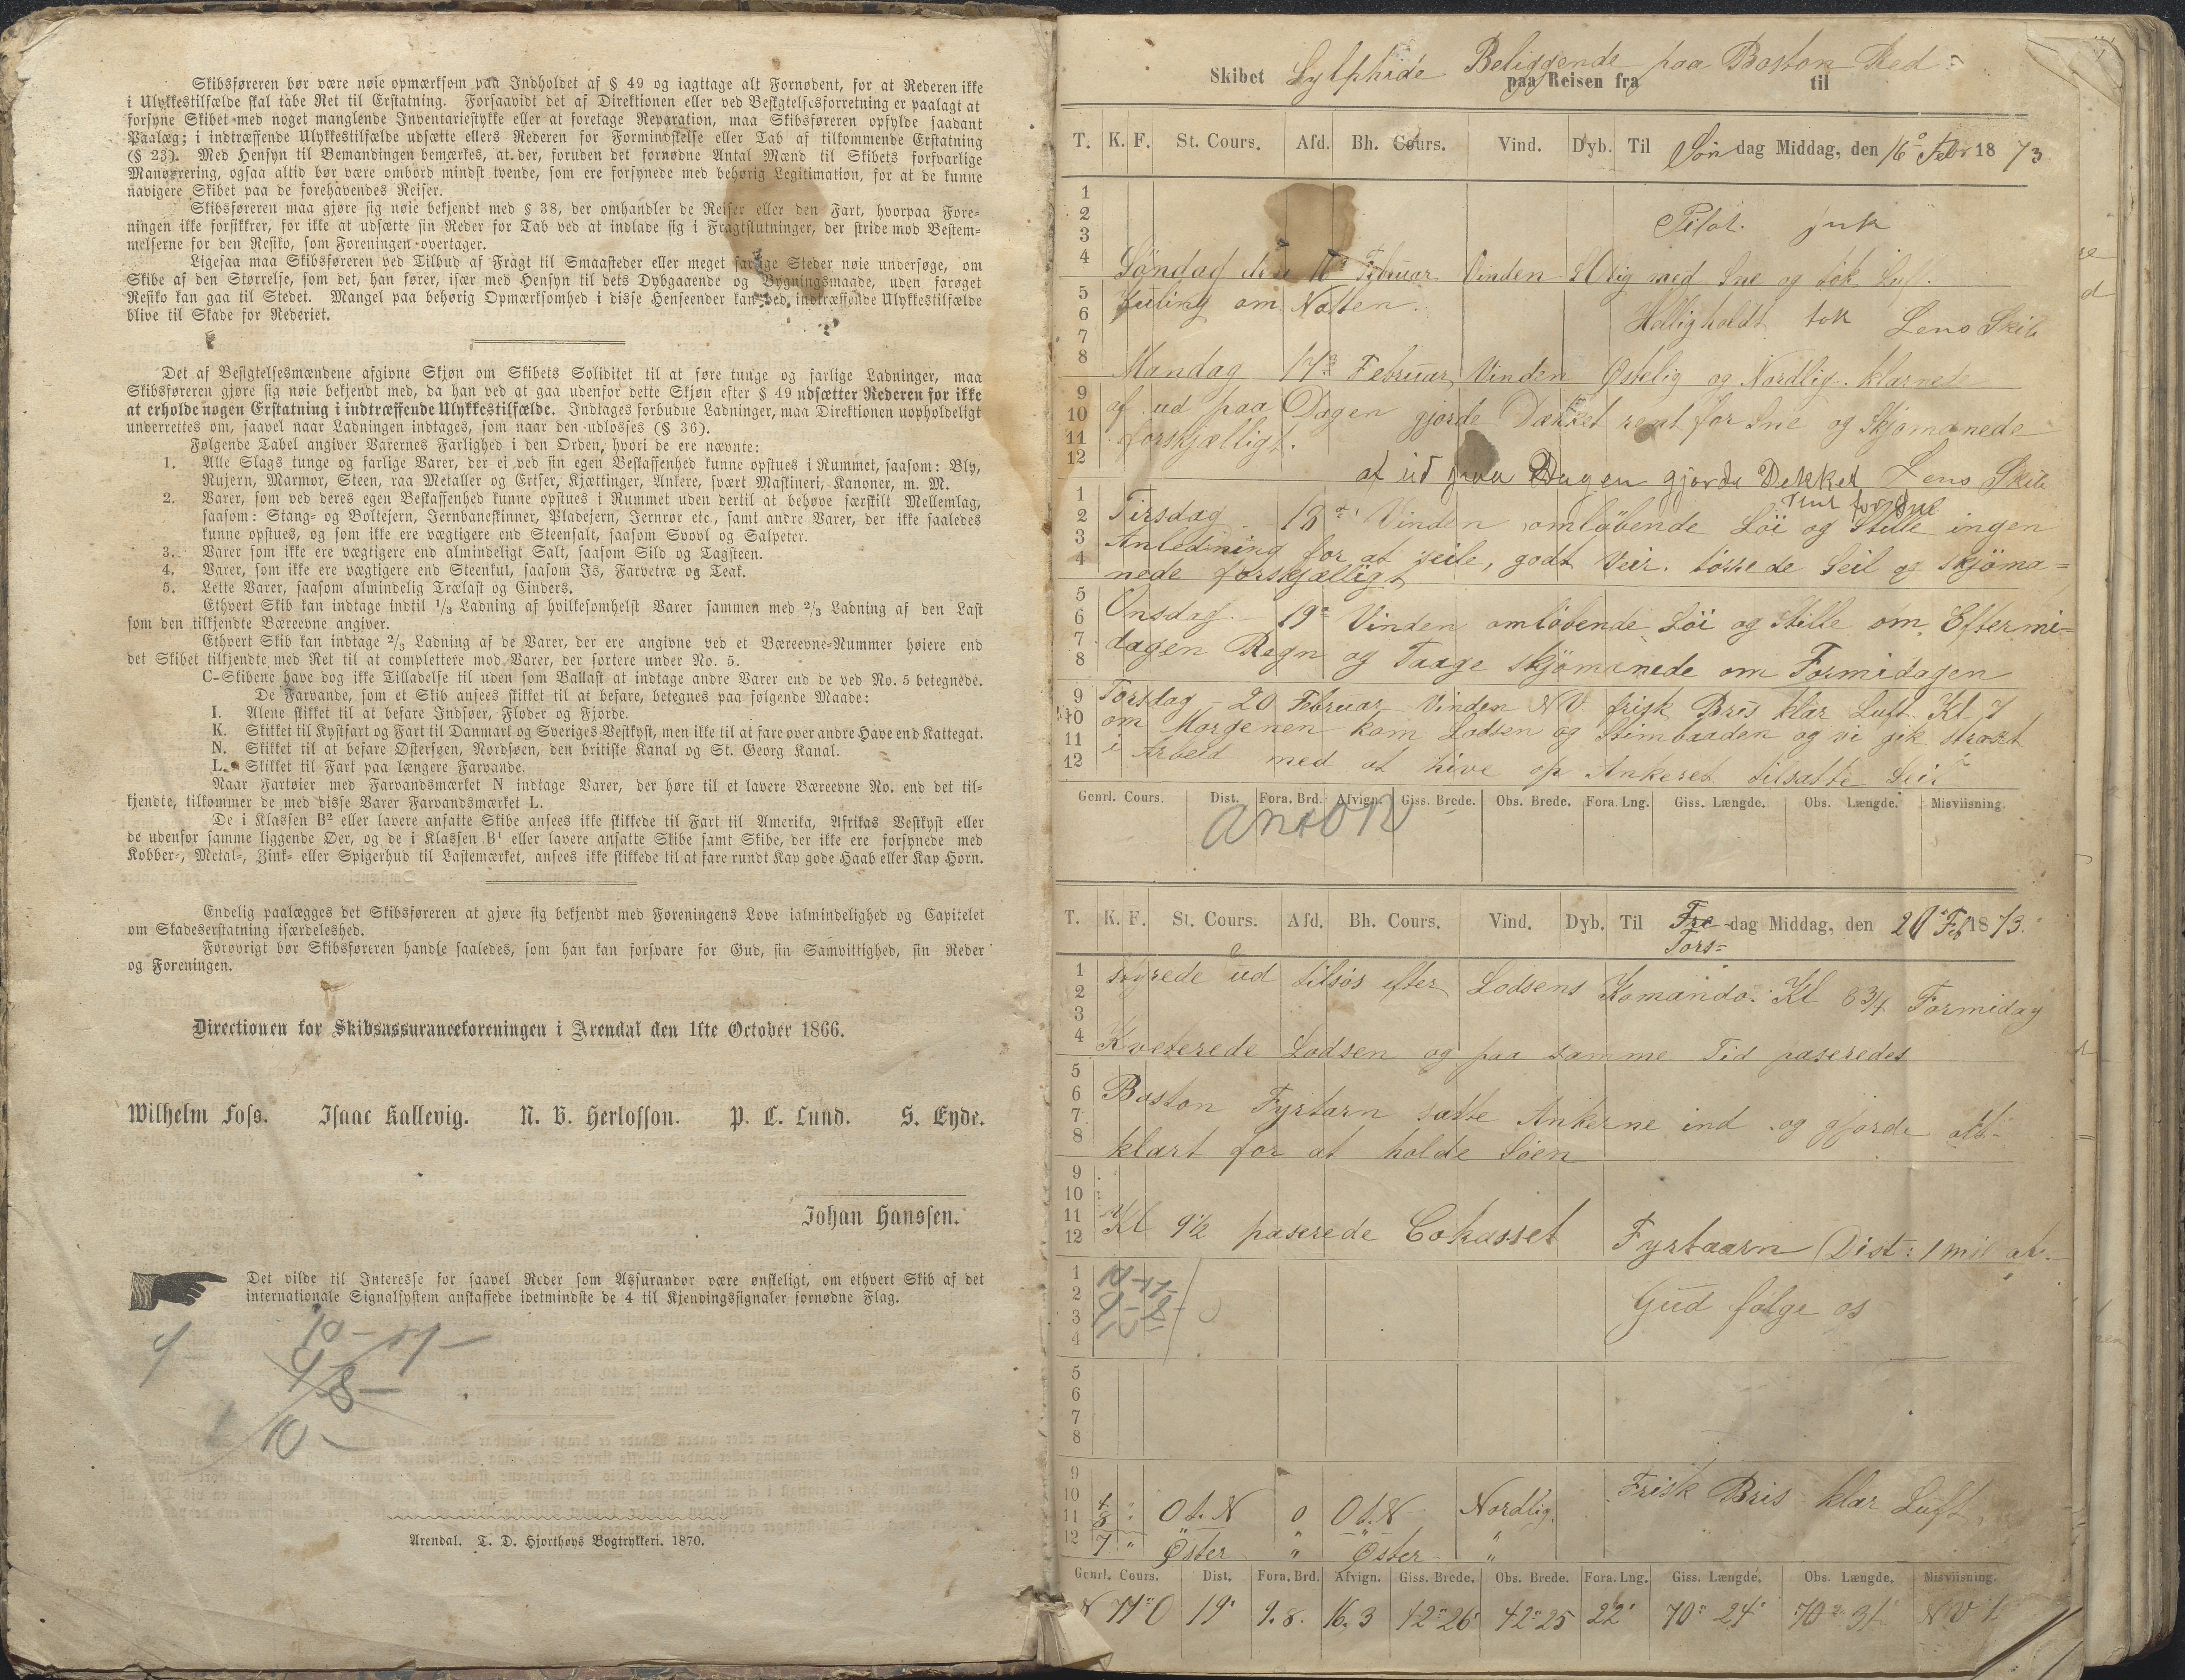 Skibsføreren bør være nøie opmærksom paa Indholdet af § 49 og iagttage alt Fornødent, for at Rederen ikke
i Ulykkestilfælde skal tabe Ret til Erstatning. Forsaavidt det af Direktionen eller ved Besigtelsesforretning er paalagt at
forsyne Skibet med noget manglende Inventariestykke eller at foretage Reparation, maa Skibsføreren opfylde saadant
Paalæg; i indtræffende Ulykkestilfælde udsætte ellers Rederen for Formindskelse eller Tab af tilkommende Erstatning
(§ 23). Med Hensyn til Bemandingen bemærkes, at der, foruden det fornødne Antal Mænd til Skibets forsvarlige
Manøvrering, ogsaa altid bør være ombord mindst tvende, som ere forsynede med behørig Legitimation, for at de kunne
navigere Skibet paa de forehavendes Reiser.
Skibsføreren maa gjøre sig nøie bekjendt med § 38, der omhandler de Reiser eller den Fart, hvorpaa Fore-
ningen ikke forsikkrer, for ikke at udsætte sin Reder for Tab ved at indlade sig i Fragtslutninger, der stride mod Bestem-
melserne for den Resiko, som Foreningen overtager.
Ligesaa maa Skibsføreren ved Tilbud af Fragt til Smaasteder eller meget farlige Steder nøie undersøge, om
Skibe af den Størrelse, som det, han fører, især med Hensyn til dets Dybgaaende og Bygningsmaade, uden farøget
Resiko kan gaa til Stedet. Mangel paa behørig Opmærksomhed i disse Henseender kan ved indtræffende Ulykkestilfælde
blive til Skade for Rederiet.
Det af Besigtelsesmændene afgivne Skjøn om Skibets Soliditet til at føre tunge og farlige Ladninger, maa
Skibsføreren gjøre sig nøie bekjendt med, da han ved at gaa udenfor dette Skjøn efter § 49 udsætter Rederen for ikke
at erholde nogen Erstatning i indtræffende Ulykkestilfælde. Indtages forbudne Ladninger, maa Direktionen uopholdeligt
underrettes om, saavel naar Ladningen indtages, som naar den udlosses (§ 36).
Følgende Tabel angiver Varernes Farlighed i den Orden, hvori de ere nævnte:
1. Alle Slags tunge og farlige Varer, der ei ved sin egen Beskaffenhed kunne opstues i Rummet, saasom: Bly,
Rujern, Marmor, Steen, raa Metaller og Ertser, Kjættinger, Ankere, svært Maskineri, Kanoner, m. M.
2. Varer, som ved deres egen Beskaffenhed kunne opstues i Rummet uden dertil at behøve særskilt Mellemlag,
saasom: Stang- og Boltejern, Jernbaneskinner, Pladejern, Jernrør etc., samt andre Varer, der ikke saaledes
kunne opstues, og som ikke ere vægtigere end Steensalt, saasom Svovl og Salpeter.
3. Varer som ikke ere vægtigere end almindeligt Salt, saasom Sild og Tagsteen.
4. Varer, som ikke ere vægtigere end Steenkul, saasom Is, Farvetræ og Teak.
5. Lette Varer, saasom almindelig Trælast og Cinders.
Ethvert Skib kan indtage indtil 1/3 Ladning af hvilkesomhelst Varer sammen med 2/3 Ladning af den Last
som den tilkjendte Bæreevne angiver.
Ethvert Skib kan indtage 2/3 Ladning af de Varer, der ere angivne ved et Bæreevne-Nummer høiere end
det Skibet tilkjendte med Ret til at complettere mod Varer, der sortere under No. 5.
C-Skibene have dog ikke Tilladelse til uden som Ballast at indtage andre Varer end de ved No. 5 betegnede.
De Farvande, som et Skib ansees skikket til at befare, betegnes paa følgende Maade:
I. Alene skikket til at befare Indsøer, Floder og Fjorde.
K. Skikket til Kystfart og Fart til Danmark og Sveriges Vestkyst, men ikke til at fare over andre Have end Kattegat.
N. Skikket til at befare Østersøen, Nordsøen, den britiske Kanal og St. Georg Kanal.
L. Skikket til Fart paa længere Farvande.
Naar Fartøier med Farvandsmærket N indtage Varer, der høre til et lavere Bæreevne No. end det til-
kjendte, tilkommer de med disse Varer Farvandsmærket L.
De i Klassen B² eller lavere ansatte Skibe ansees ikke skikkede til Fart til Amerika, Afrikas Vestkyst eller
de udenfor samme liggende Øer, og de i Klassen B¹ eller lavere ansatte Skibe samt Skibe, der ikke ere forsynede med
Kobber-, Metal-, Zink- eller Spigerhud til Lastemærket, ansees ikke skikkede til at fare rundt Kap gode Haab eller Kap Horn.
Endelig paalægges det Skibsføreren at gjøre sig bekjendt med Foreningens Love ialmindelighed og Capitelet
om Skadeserstatning isærdeleshed.
Forøvrigt bør Skibsføreren handle saaledes, som han kan forsvare for Gud, sin Samvittighed, sin Reder
og Foreningen.
Directionen for Skibsassuranceforeningen i Arendal den 1ste October 1866.
Wilhelm Foss. Isaac Kallevig. N. B. Herlofson. P. C. Lund. S. Eyde.
Johan Hanssen.
Det vilde til Interesse for saavel Reder som Assurandør være ønskeligt, om ethvert Skib af det
internationale Signalsystem anskaffede idetmindste de 4 til Kjendingssignaler fornødne Flag.
10 - 17 -
4 - 8 -
10 -
Arendal. T. D. Hjorthøys Bogtrykkeri. 1870.
Skibet Sylphide Beliggende paa Boston Red
paa Reisen fra til
T. K. F. St. Cours. Afd. Bh. Cours. Vind. Dyb. Til Søndag Middag, den 16 Febr 1873
Pilot. juk
Söndag den 16 Februar Vinden SOlig med Sne og tok Luft.
kuling om Natten.
Helligholdt tok Lens Skib
Mandag 17 Februar Vinden Østelig og Nordlig. klarnede
af ud paa Dagen gjorde Dækket rent for Sne og Skjømanede
forskjælligt.
af ud paa Dagen gjorde Dekket Lens Skib
rent for Sne
Tirsdag 18 Vinden omløbende Löi og Stille ingen
Anledning for at seile, godt Veir. törrede Seil og skjöma=
nede forskjælligt
Onsdag 19 Vinden omløbende Löi og Stille om Eftermi=
dagen Regn og Taage skjömanede om Formidagen
Torsdag 20 Februar Vinden NV frisk Bris klar Luft. Kl 7
om Morgenen kom Lodsen og Stimbaaden og vi gik straxt
i Arbeid med at hive op Ankeret tilsatte Seil
Genrl. Cours. Dist. Fora. Brd. Afvign. Giss. Brede. Obs. Brede. Fora. Lng. Giss. Længde. Obs. Længde. Misviisning.
Anton
T. K. F. St. Cours. Afd. Bh. Cours. Vind. Dyb. Til Fre-dag Middag, den 20 Feb 1873.
Tors=
styrede ud tilsös efter Lodsens Komando. Kl 8 3/4 Formidag
Kveterede Lodsen og paa samme Tid paseredes
Boston Fyrtarn satte Ankerne ind og gjorde alt
klart for at holde Söen
Kl 9 1/2 paserede Cohasset Fyrtaarn Dist: 1 mil af.
Gud følge os
4/8 " O t. N 0 O t. N Nordlig. Frisk Bris klar Luft
7 " Øster " Øster "
Genrl. Cours. Dist. Fora. Brd. Afvign. Giss. Brede. Obs. Brede. Fora. Lng. Giss. Længde. Obs. Længde. Misviisning.
N 77° O 19' 9.8. 16.3 42° 26' 42° 25 22' 70° 24' 70° 31'